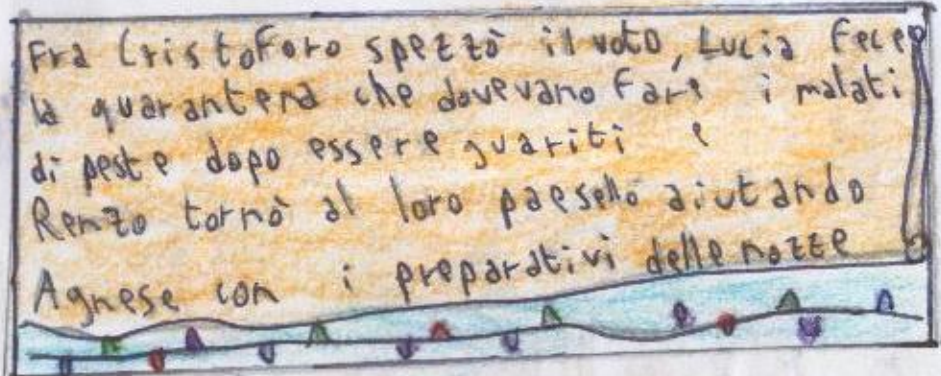 Fra Cristoforo spezzò il voto, Lucia fece
la quarantena che dovevano fare i malati
di peste dopo essere guariti e
Renzo tornò al loro paesello aiutando
Agnese con i preparativi delle nozze